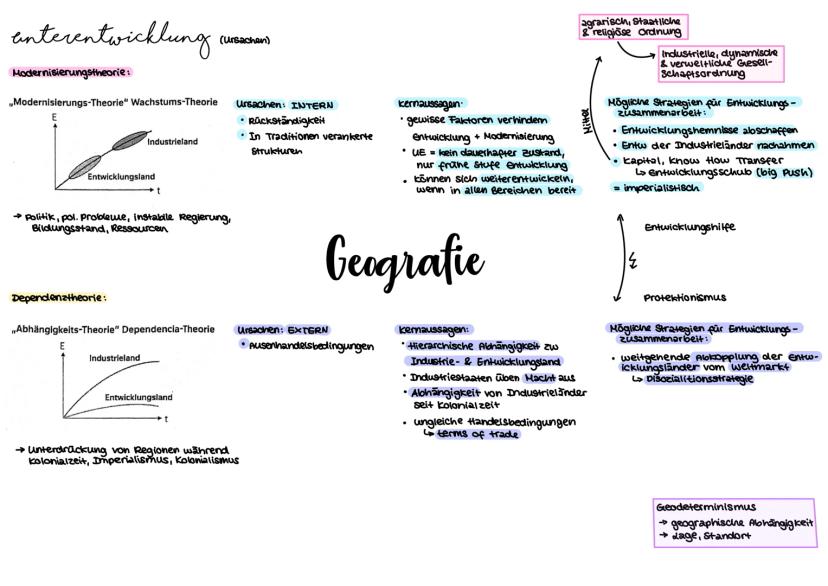 unterentwicklung (Ursachen)
Modernisierungstheorie:
„Modernisierungs-Theorie" Wachstums-Theorie
E
Industrieland
Entwicklungsland
t
→ Politik, pol. Probleme, instabile Regierung,
Bildungsstand, Ressourcen
Ursachen: INTERN
• Rückständigkeit
• In Traditionen verankerte
Strukturen
Kernaussagen:
• gewisse Faktoren verhindern
Entwicklung + Modernisierung
• UE = kein dauerhafter Zustand,
nur frühe Stufe Entwicklung
• können sich weiterentwickeln,
wenn in allen Bereichen bereit
agrarisch, staatliche
& religiöse Ordnung
Industrielle, dynamische
& verweltliche Gesell-
schaftsordnung
Mittel
Mögliche Strategien für Entwicklungs-
zusammenarbeit:
• Entwicklungshemnisse abschaffen
• Entw der Industrieländer nachahmen
• Kapital, Know How Transfer
↳ Entwicklungsschub (big Push)
= imperialistisch
Entwicklungshilfe
Protektionismus
Geografie
Dependenztheorie:
„Abhängigkeits-Theorie" Dependencia-Theorie
E
Industrieland
Entwicklungsland
t
→ Unterdrückung von Regionen während
Kolonialzeit, Imperialismus, Kolonialismus
Ursachen: EXTERN
• Ausenhandelsbedingungen
Kernaussagen:
• Hierarchische Abhängigkeit zw
Industrie- & Entwicklungsland
• Industriestaaten üben Macht aus
• Abhängigkeit von Industrieländer
seit Kolonialzeit
• ungleiche Handelsbedingungen
↳ terms of trade
Mögliche Strategien für Entwicklungs-
zusammenarbeit:
• weitgehende Abkopplung der Entw-
icklungsländer vom Weltmarkt
↳ Disozialitionsstrategie
Geodeterminismus
→ geographische Abhängigkeit
→ Lage, Standort